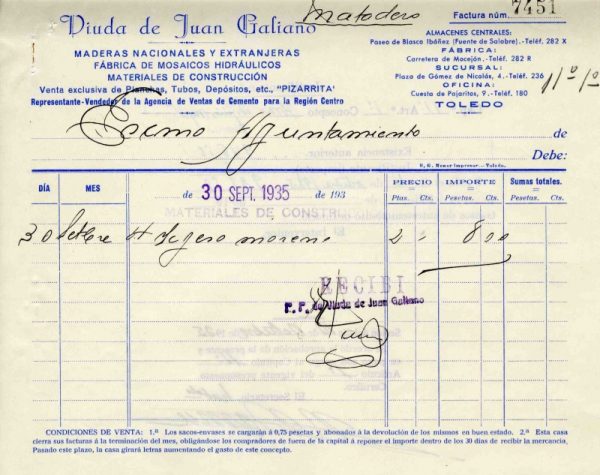 Matadero
Viuda de Juan Galiano
Factura núm. 7451
MADERAS NACIONALES Y EXTRANJERAS
FÁBRICA DE MOSAICOS HIDRÁULICOS
MATERIALES DE CONSTRUCCIÓN
Venta exclusiva de Planchas, Tubos, Depósitos, etc., "PIZARRITA"
Representante-Vendedor de la Agencia de Ventas de Cemento para la Región Centro
ALMACENES CENTRALES:
Paseo de Blasco Ibáñez (Fuente de Salobre).-Teléf. 282 X
FÁBRICA:
Carretera de Mocejón.-Teléf. 282 R
SUCURSAL:
Plaza de Gómez de Nicolás, 4.-Teléf. 236
OFICINA:
Cuesta de Pajaritos, 9.-Teléf. 180
TOLEDO
Excmo Ayuntamiento de
Debe:
DÍA MES de 30 SEPT. 1935 de 193 PRECIO IMPORTE Sumas totales.
Ptas. Cts. Pesetas. Cts. Pesetas. Cts.
MATERIALES DE CONSTRUC
30 Setbre 4 moreno 2 - 8 00
RECIBI
P. P. de Viuda de Juan Galiano
El Secretario
CONDICIONES DE VENTA: 1.ª Los sacos-envases se cargarán á 0,75 pesetas y abonados á la devolución de los mismos en buen estado. 2.ª Esta casa
cierra sus facturas á la terminación del mes, obligándose los compradores de fuera de la capital á reponer el importe dentro de los 30 días de recibir la mercancía.
Pasado este plazo, la casa girará letras aumentando el gasto de este concepto.